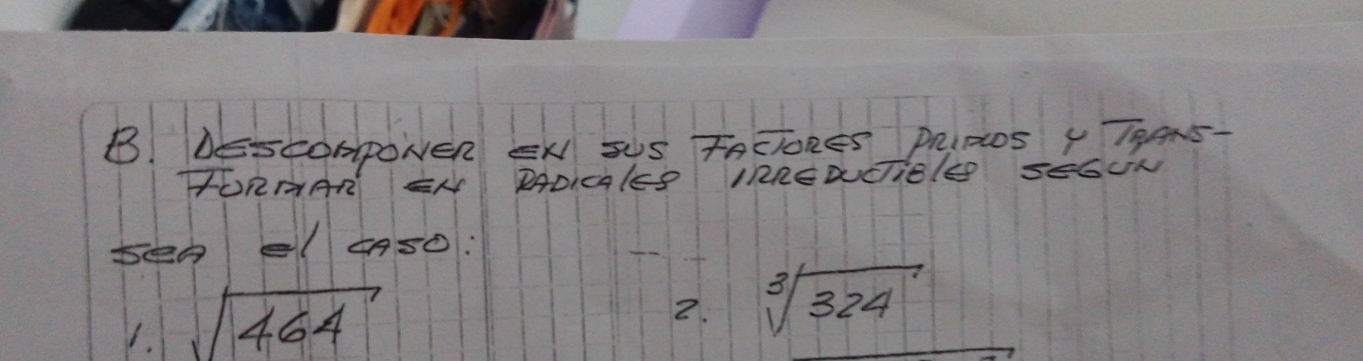 B. DESCOMPONER EN SUS FACTORES PRIMOS Y TRANS-
FORMAR EN RADICALES IRREDUCTIBLES SEGUN
SEA el CASO:
1. √464 2. ∛324